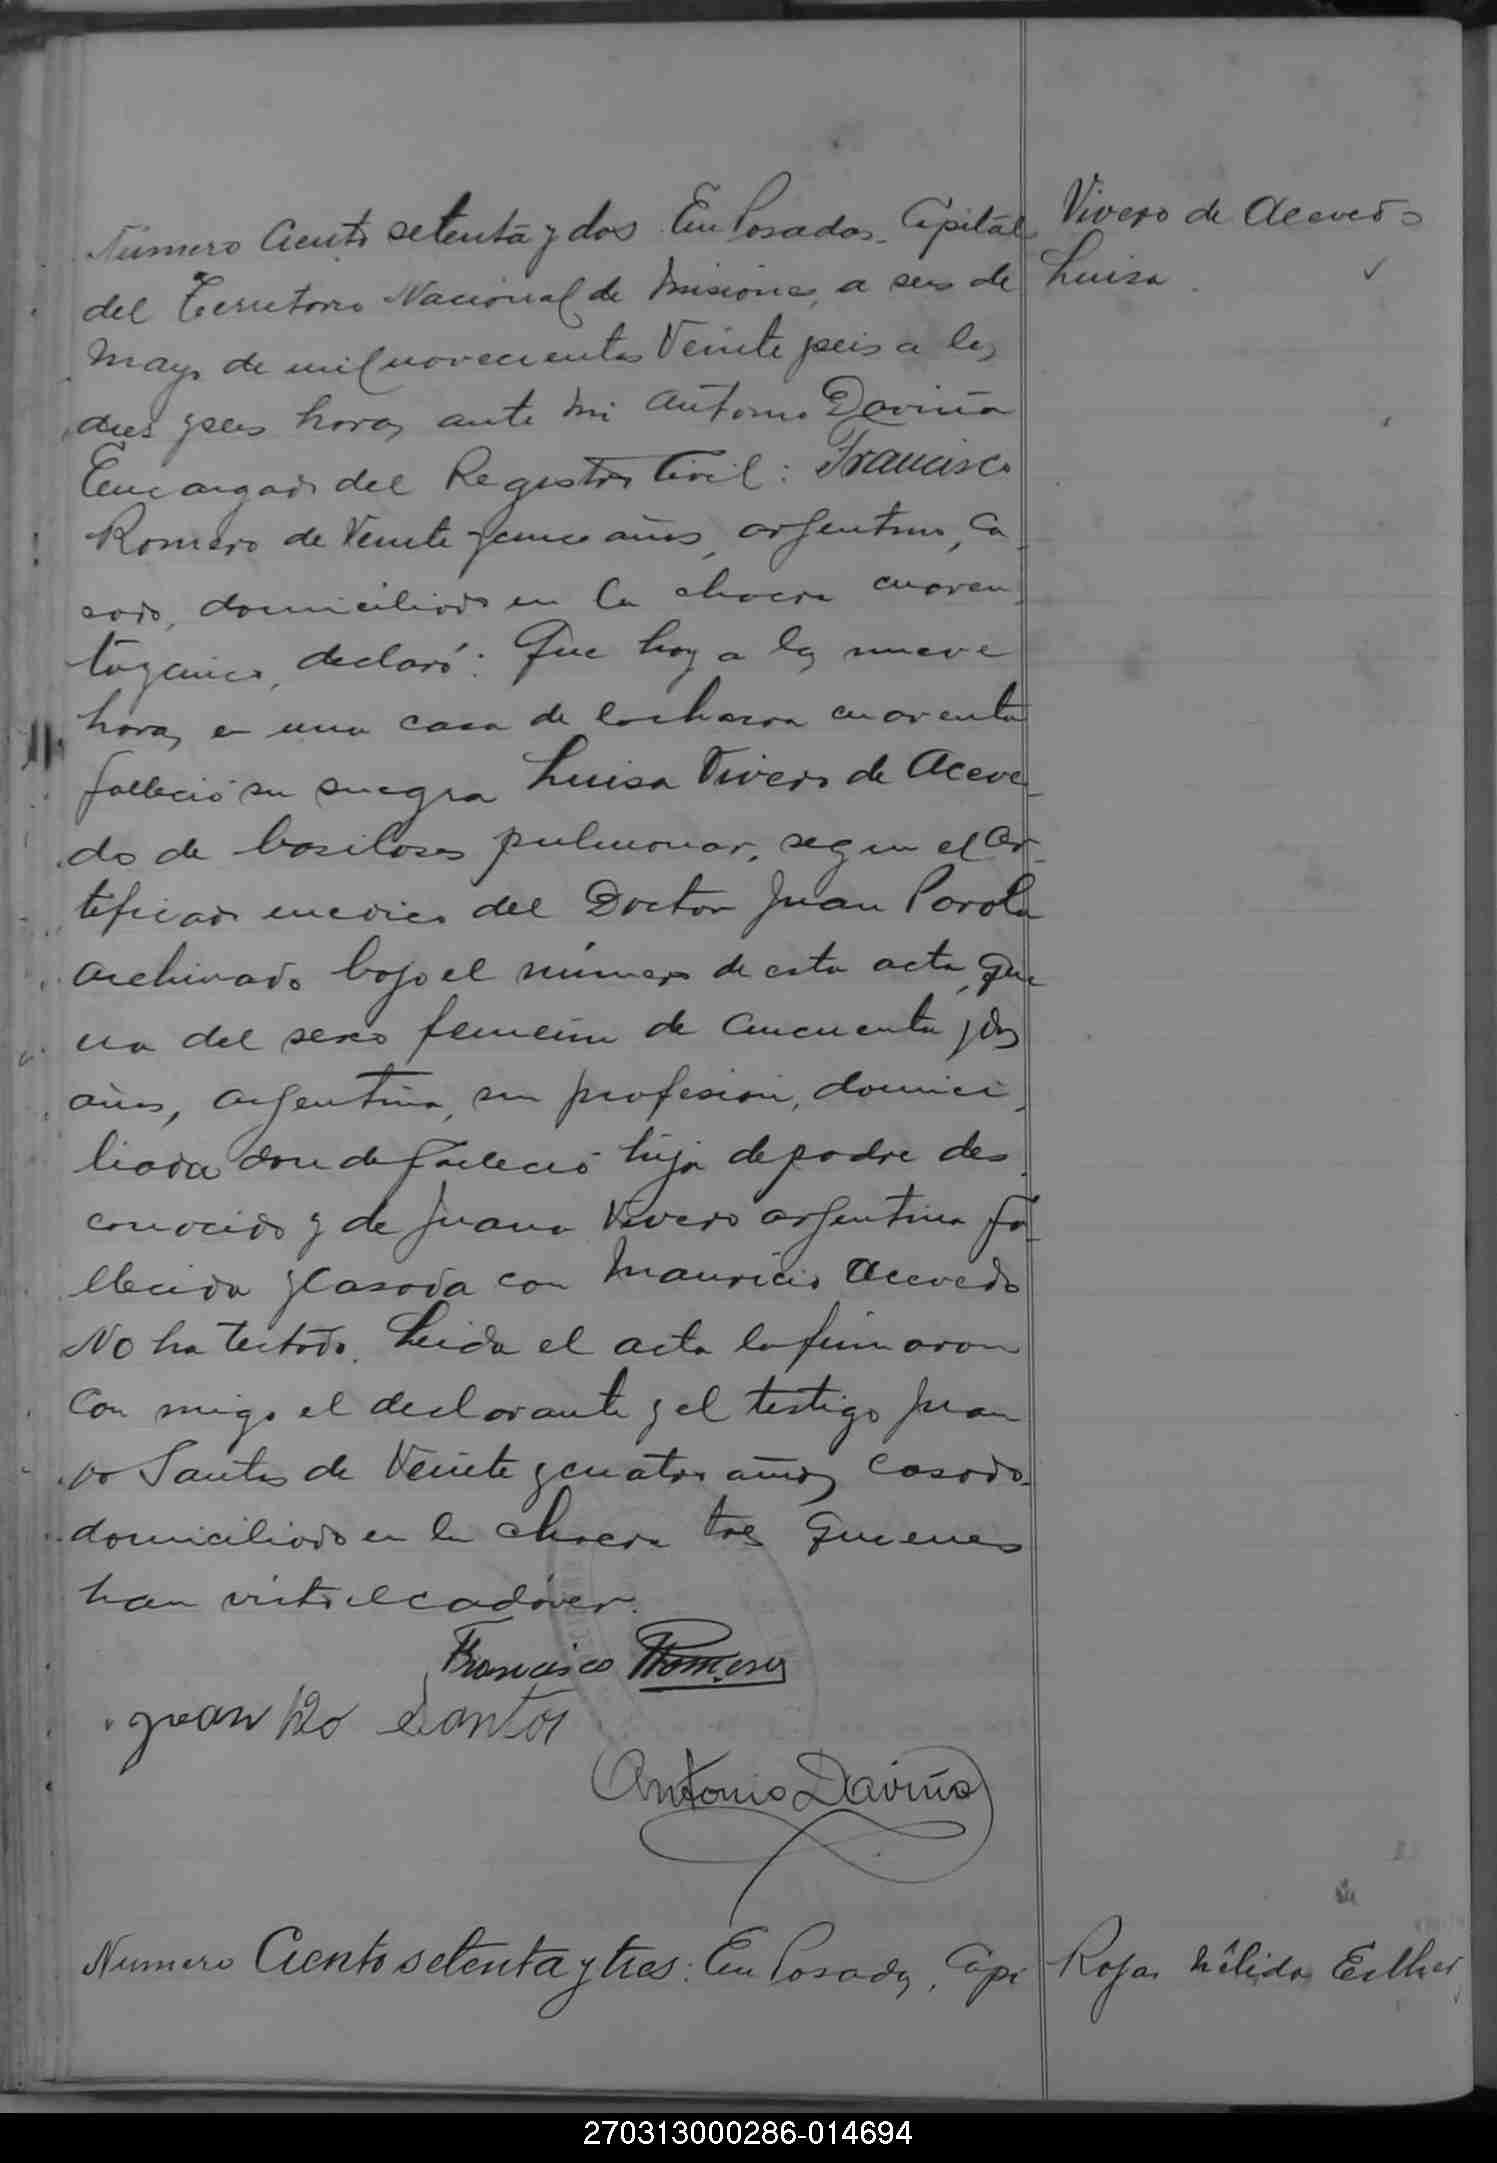 Número Ciento setenta y dos. En Posadas, Capital
Vivero de Acevedo
Luisa
del Territorio Nacional de Misiones, a seis de
Mayo de mil novecientos Veinte y seis a las
diez y seis horas, ante mi Antonio Daviña
Encargado del Registro Civil: Francisco
Romero de Veinte y cinco años, argentino, ca
sado, domiciliado en la chacra cuaren
ta y cinco, declaró: Que hoy a las nueve
horas en una casa de la chacra cuarenta
falleció su suegra Luisa Vivero de Aceve
do de basilosis pulmonar, segun el cer
tificado medico del Doctor Juan Parola
archivado bajo el número de esta acta, que
era del sexo femenino de cincuenta y dos
años, argentina, sin profesion, domici
liada donde falleció hija de padre des
conocido y de Juana Vivero argentina fa
llecida y casada con Mauricio Acevedo
No ha testado. Leida el acta la firmaron
con migo el declarante y el testigo Juan
Ro Santos de Veinte y cuatro años, casado
domiciliado en la chacra tres quienes
han visto el cadáver.
Francisco Romero
Juan Ro Santos
Antonio Daviña
Numero Ciento setenta y tres: En Posadas, Capi
Rojas Nélida Esther
270313000286-014694